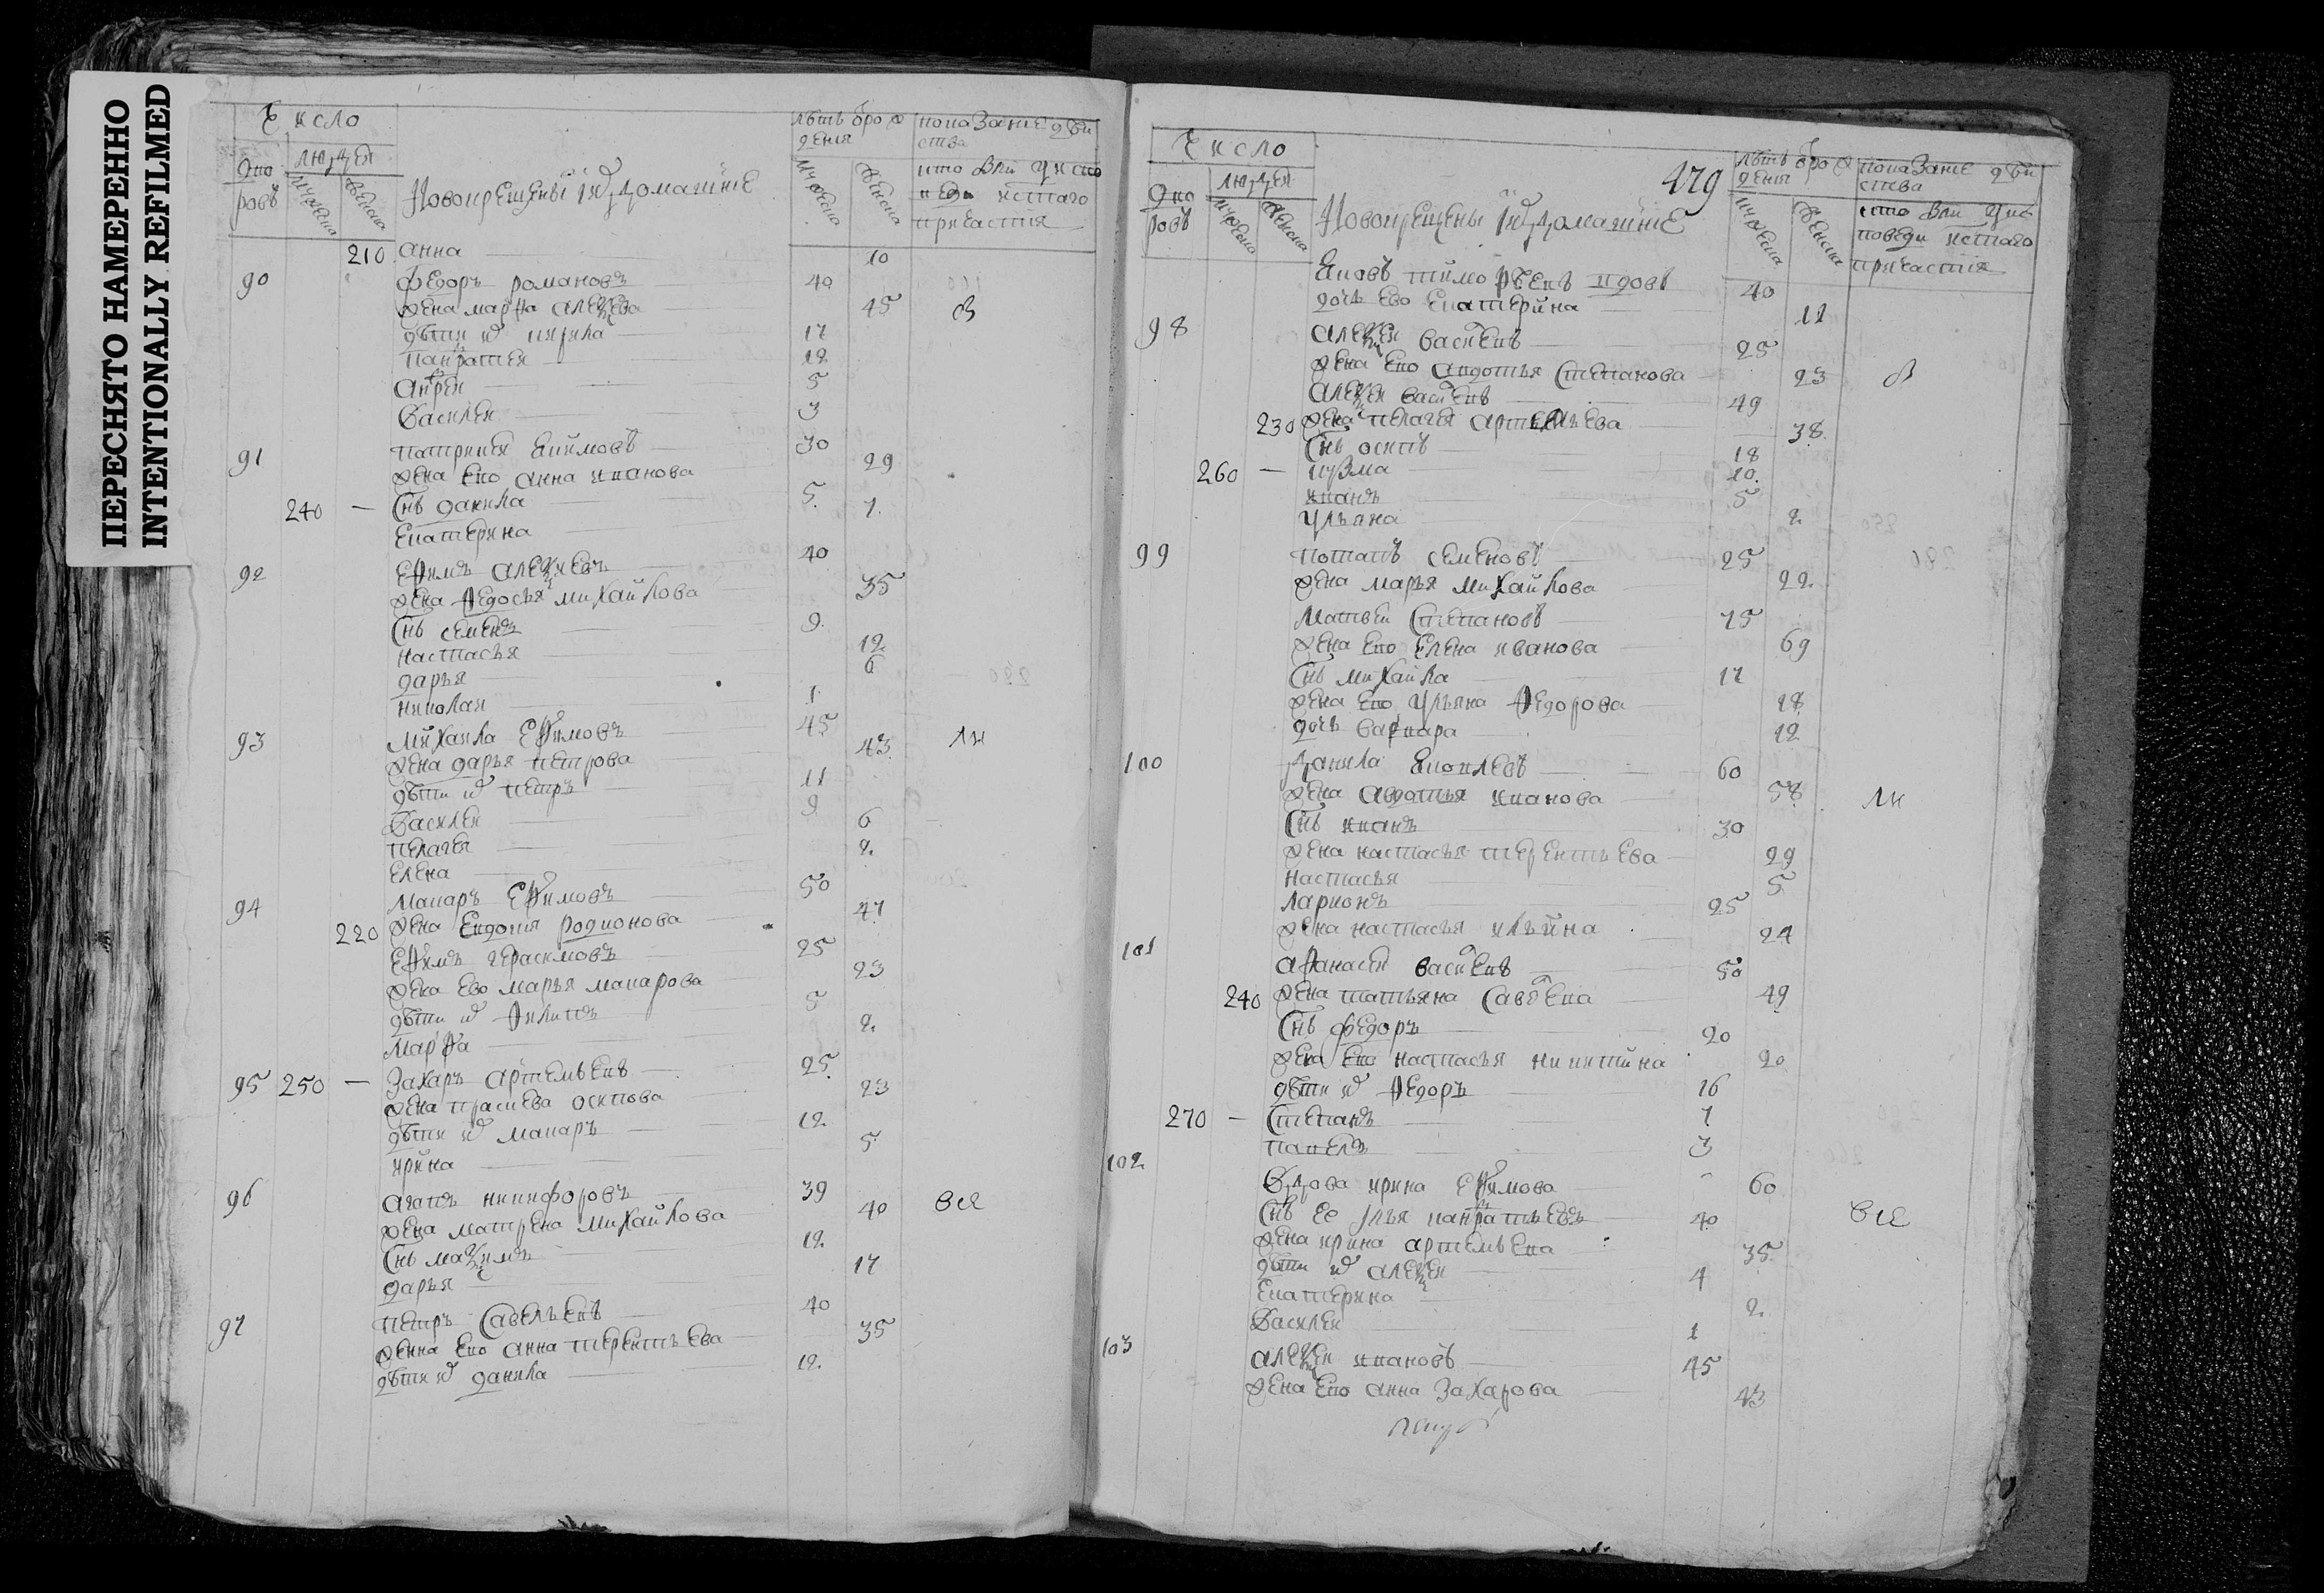 ПЕРЕСНЯТО НАМЕРЕННО
INTENTIONALLY REFILMED
Число
Дво
ровъ
людей
мужеска
женска
Новокрещены и их домашние
лѣтъ от рож
дения
мужеска
женска
показание дѣй
ства
кто был у испо
веди и стаго
причастия
210 анна 10
90 федоръ романовъ 40
жена марѳа алеѯева 45
дѣти их кирила 17
панкратей 12
андрей 5
василей 3
91 патрикей екимовъ 30
жена ево анна иванова 29
240 — снъ данила 5
екатерина 7
92 еѳимъ алеѯиевъ 40
жена ѳедосья михайлова 35
снъ семенъ 9
настасья 12
дарья 6
николай 1
93 михаила еѳимовъ 45
жена дарья петрова 43
ли
дѣти их петръ 11
василей 9
пелагея 6
елена 2
94 макаръ еѳимовъ 50
220 жена евдокия родионова 47
еѳимъ герасимовъ 25
жена ево марья макарова 23
дѣти их ѳилипъ 5
марѳа 2
95 250 — захаръ артемьевъ 25
жена прасковя осипова 23
дѣти их макаръ 12
ирина 5
96 агапъ никифоровъ 39
жена матрена михайлова 40
все
снъ маѯимъ 12
дарья 17
97 петръ савельевъ 40
женна ево анна терентьева 35
дѣти их данила 12
479
Число
Дво
ровъ
людей
мужеска
женска
Новокрещены и их домашние
лѣтъ от рож
дения
мужеска
женска
показание дѣй
ства
кто был у испо
веди и стаго
причастия
яковъ тимоѳеевъ вдовъ 40
дочь ево екатерина 11
98 алеѯей васиевъ 25
жена ево авдотья степанова 23
алеѯей васиевъ 49
230 жена пелагея артемьева 38
снъ осипъ 18
260 — кузма 10
иванъ 5
ульяна 2
99 потапъ семеновъ 25
жена марья михайлова 22
матвей степановъ 75
жена ево елена иванова 69
снъ михайла 17
жена ево ульяна ѳедорова 18
дочь варвара 12
100 данила яковлевъ 60
жена авдотья иванова 58
ли
снъ иванъ 30
жена настасья терентьева 29
настасья 5
ларионъ 25
жена настасья ильина 24
101 аѳанасей васиевъ 50
240 жена татьяна савеева 49
снъ федоръ 20
жена ево настасья никитина 20
дѣти их ѳедоръ 16
270 — степанъ 7
павелъ 3
102 вдова ирина еѳимова 60
снъ ее илья панкратьевъ 40
все
жена ирина артемьева 35
дѣти их алеѯей 4
екатерина 2
василей 1
103 алеѯей ивановъ 45
жена ево анна захарова 43